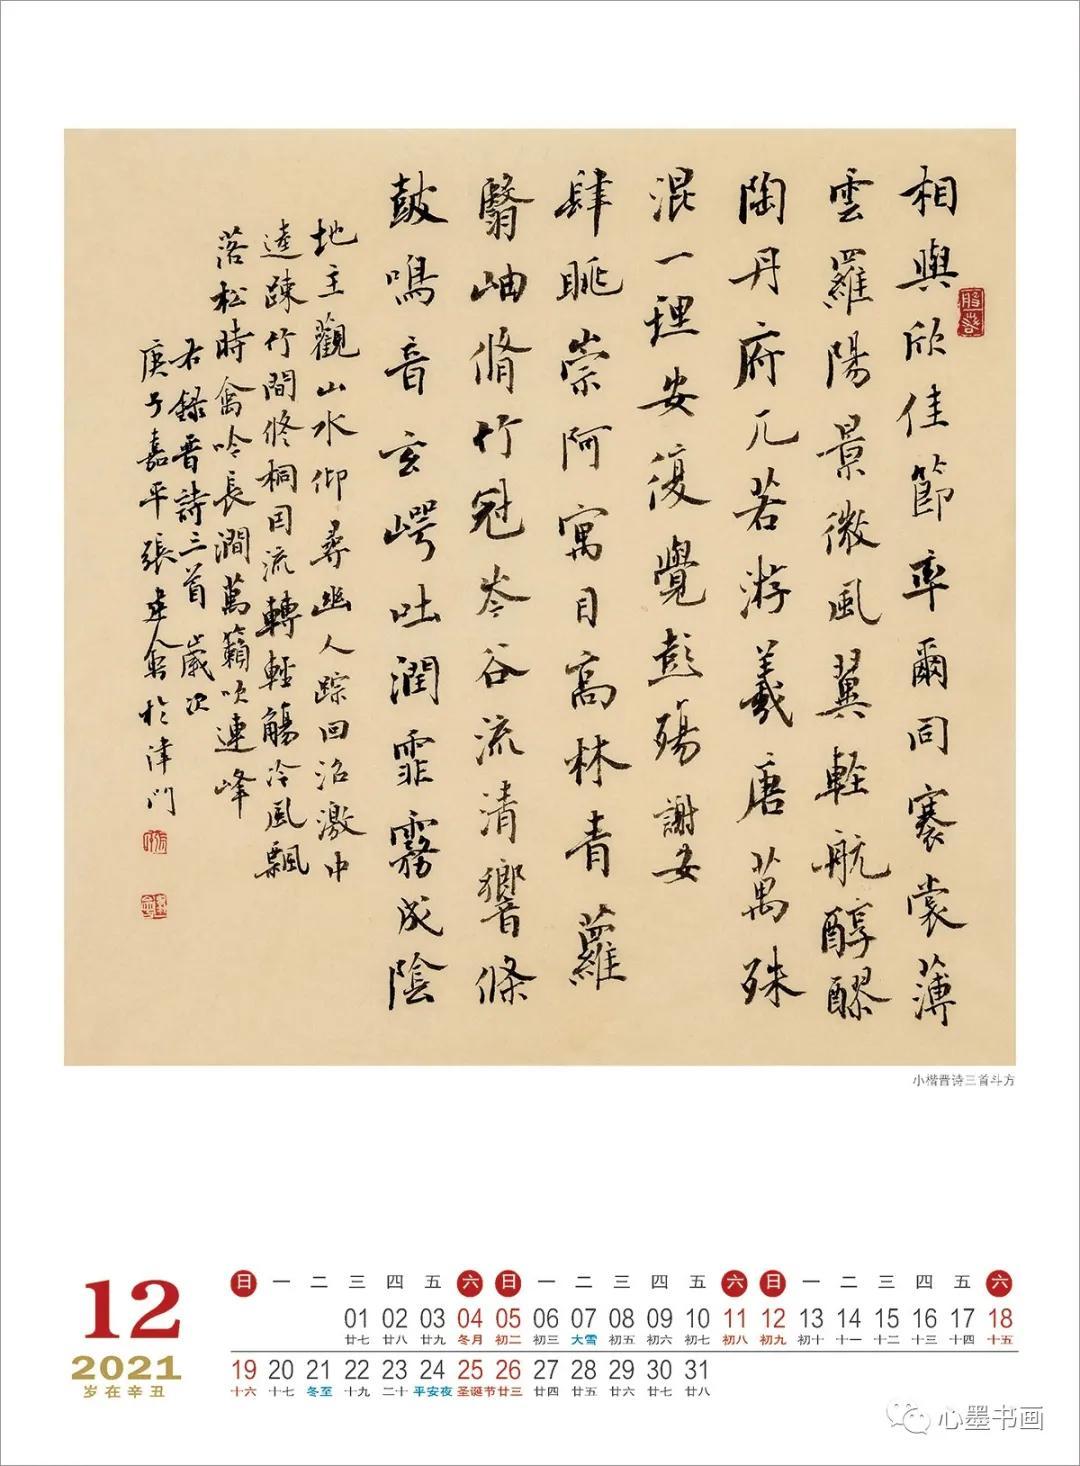 相與欣佳節率爾同褰裳薄
雲羅陽景微風翼輕航醇醪
陶丹府兀若游羲唐萬殊
混一理安復覺彭殤謝安
肆眺崇阿寓目高林青蘿
翳岫脩竹冠岑谷流清響條
鼓鳴音玄崿吐潤霏霧成陰
地主觀山水仰尋幽人踪回沼激中
逵踈竹間修桐因流轉輕觴冷風飄
落松時禽吟長澗萬籟吹連峰
右錄晋詩三首歲次
庚子嘉平張建會於津門
小楷晋诗三首斗方
12
2021
岁在辛丑
日 一 二 三 四 五 六 日 一 二 三 四 五 六 日 一 二 三 四 五 六
01 02 03 04 05 06 07 08 09 10 11 12 13 14 15 16 17 18
廿七 廿八 廿九 冬月 初二 初三 大雪 初五 初六 初七 初八 初九 初十 十一 十二 十三 十四 十五
19 20 21 22 23 24 25 26 27 28 29 30 31
十六 十七 冬至 十九 二十 平安夜 圣诞节 廿三 廿四 廿五 廿六 廿七 廿八
心墨书画